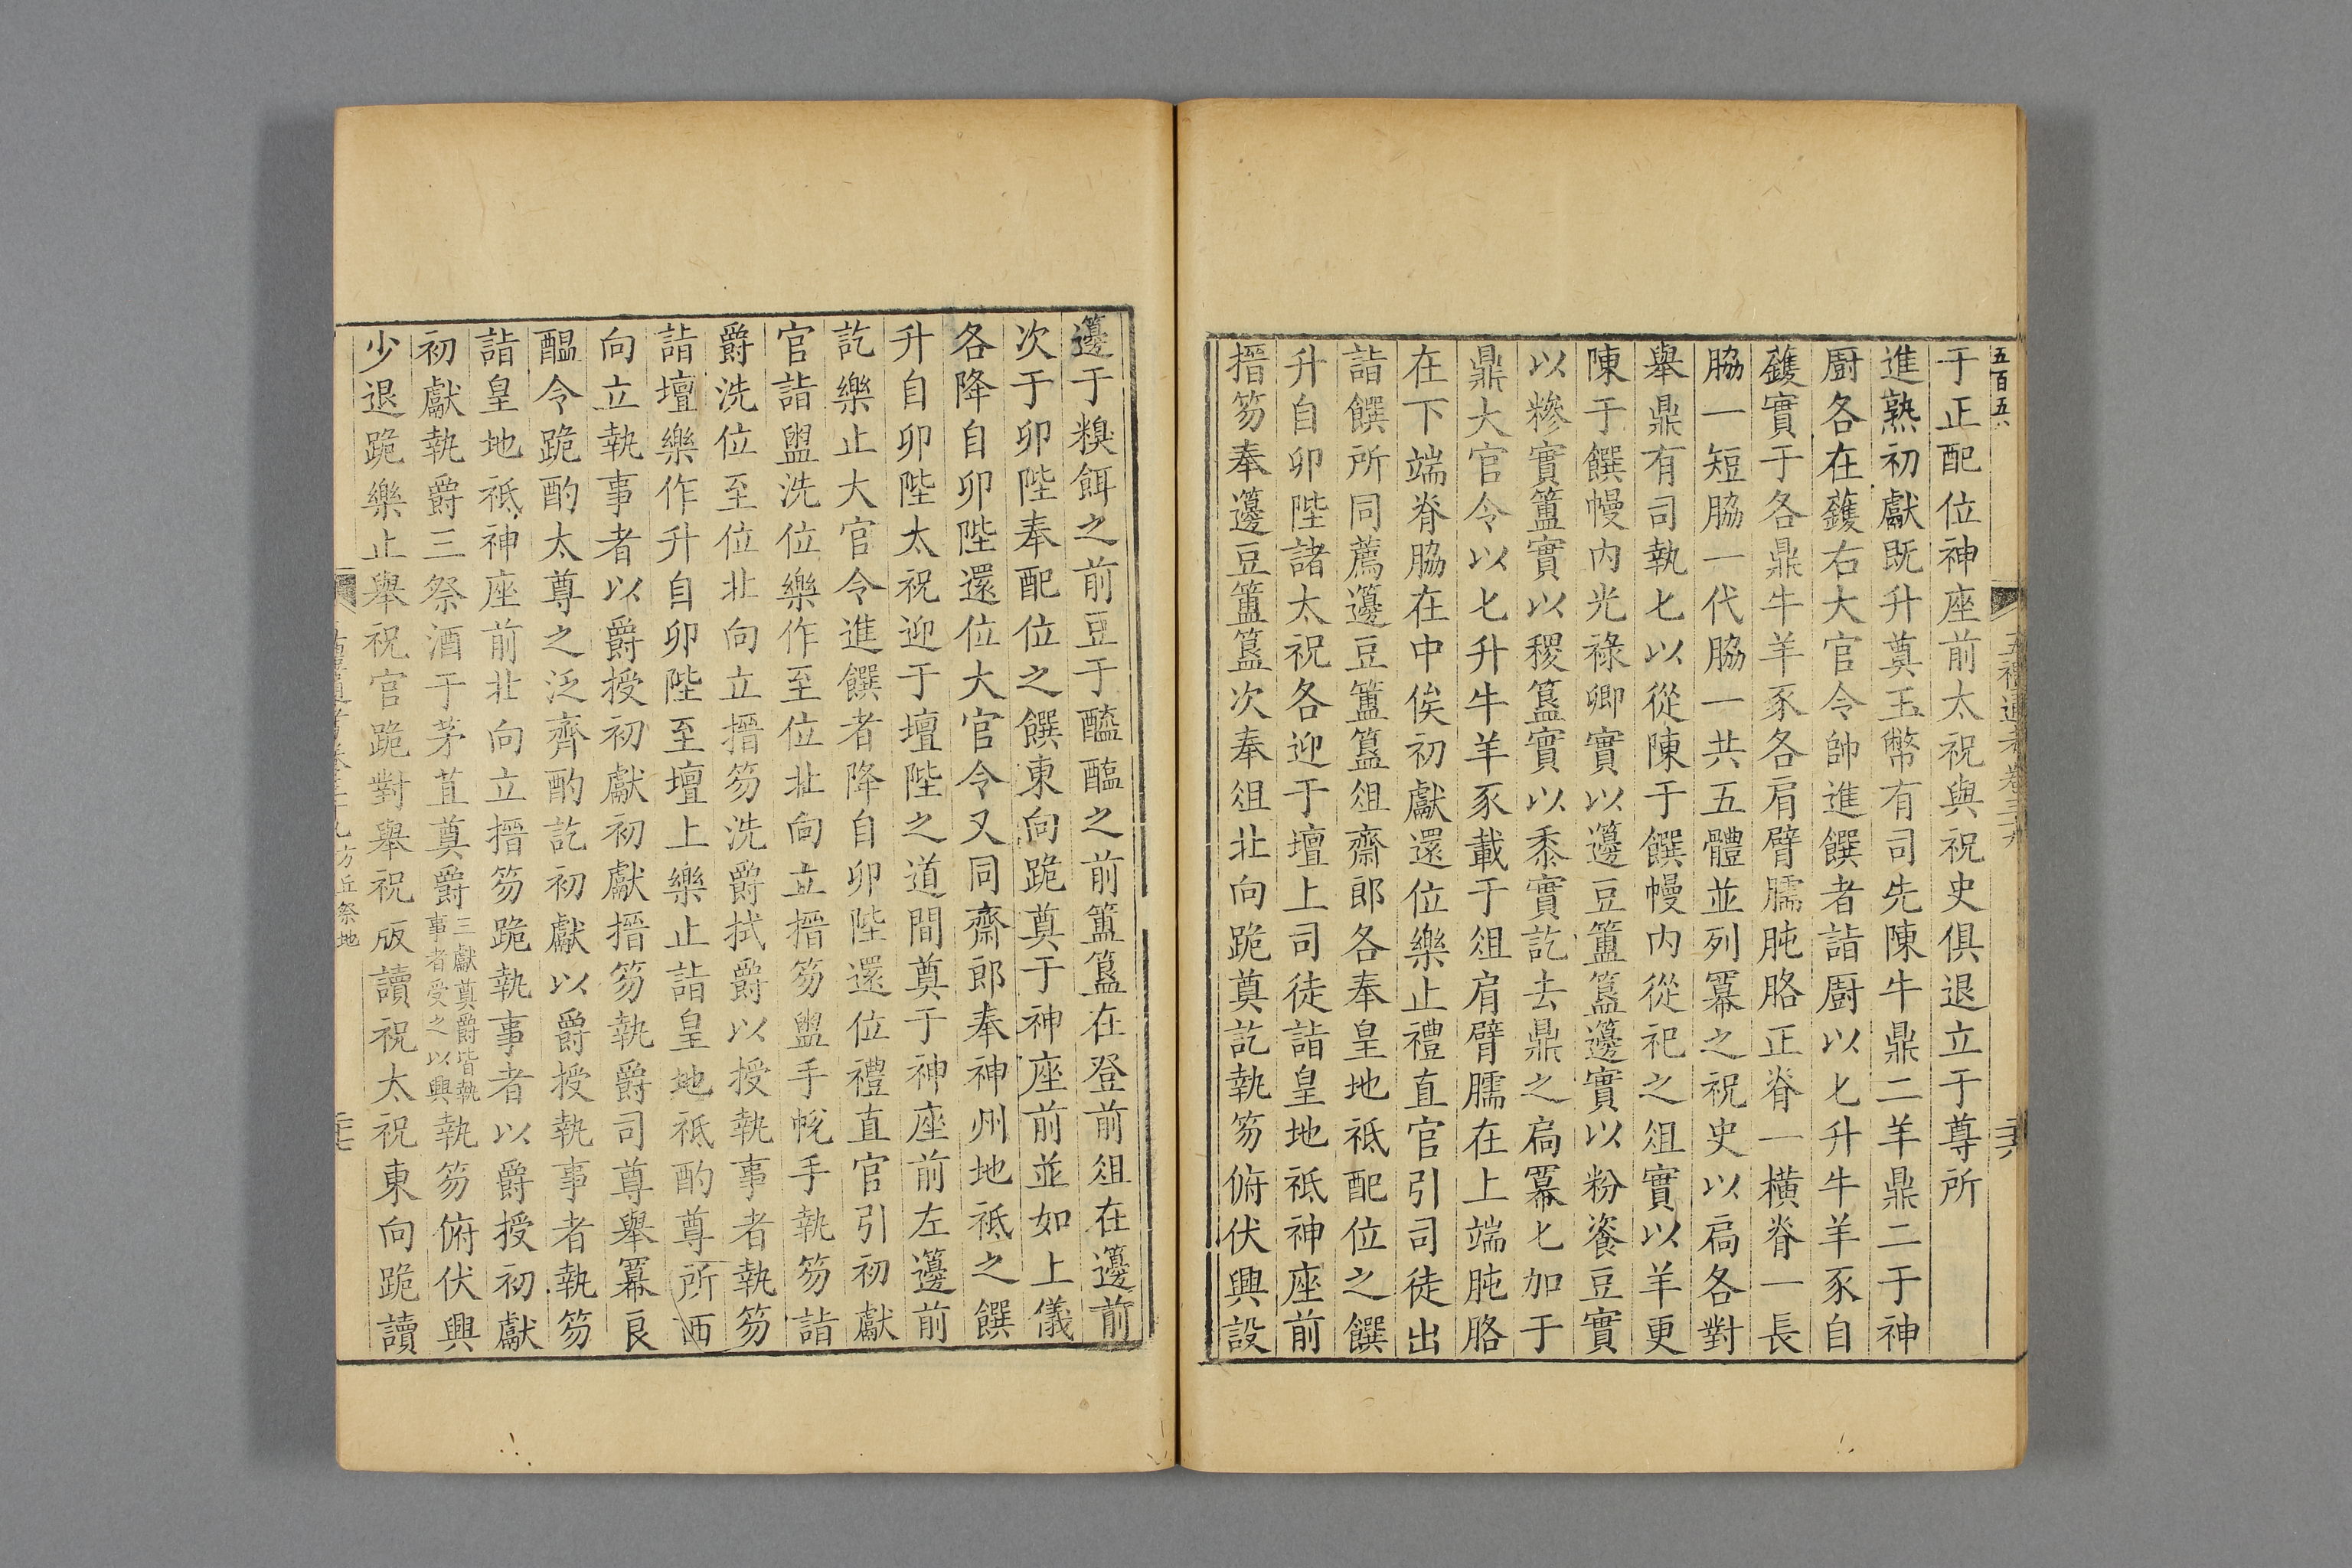 五百五六
五禮通考卷三十九
二十六
于正配位神座前太祝與祝史俱退立于尊所
進熟初獻既升奠玉幣有司先陳牛鼎二羊鼎二于神
廚各在鑊右大官令帥進饌者詣廚以匕升牛羊豕自
鑊實于各鼎牛羊豕各肩臂臑肫胳正脊一橫脊一長
脇一短脇一代脇一共五體並列冪之祝史以扃各對
舉鼎有司執匕以從陳于饌幔內從祀之俎實以羊更
陳于饌幔內光祿卿實以籩豆簠簋籩實以粉餈豆實
以糝實簠實以稷簋實以黍實訖去鼎之扃冪匕加于
鼎大官令以匕升牛羊豕載于俎肩臂臑在上端肫胳
在下端脊脇在中俟初獻還位樂止禮直官引司徒出
詣饌所同薦籩豆簠簋俎齋郎各奉皇地祗配位之饌
升自卯陛諸太祝各迎于壇上司徒詣皇地祗神座前
搢笏奉籩豆簠簋次奉俎北向跪奠訖執笏俯伏興設
籩于糗餌之前豆于醯醢之前簠簋在登前俎在籩前
次于卯陛奉配位之饌東向跪奠于神座前並如上儀
各降自卯陛還位大官令又同齋郎奉神州地祗之饌
升自卯陛太祝迎于壇陛之道間奠于神座前左籩前
訖樂止大官令進饌者降自卯陛還位禮直官引初獻
官詣盥洗位樂作至位北向立搢笏盥手帨手執笏詣
爵洗位至位北向立搢笏洗爵拭爵以授執事者執笏
詣壇樂作升自卯陛至壇上樂止詣皇地祗酌尊所西
向立執事者以爵授初獻初獻搢笏執爵司尊舉冪良
醖令跪酌太尊之泛齊酌訖初獻以爵授執事者執笏
詣皇地祗神座前北向立搢笏跪執事者以爵授初獻
初獻執爵三祭酒于茅苴奠爵三獻奠爵皆執事者受之以興執笏俯伏興
少退跪樂止舉祝官跪對舉祝版讀祝太祝東向跪讀
方丘祭地
二十七